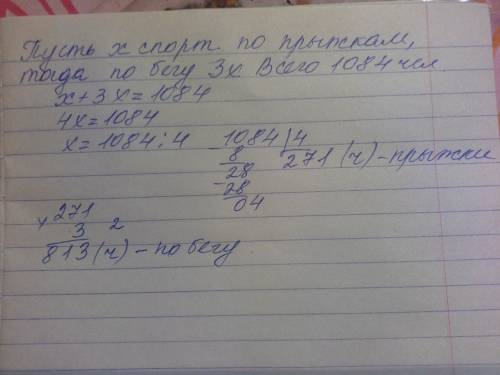 Пусть х спорт. по прыжкам,
тогда по бегу 3х. Всего 1084 чел.
х+3х=1084
4х=1084
х=1084:4
1084|4
8
271 (ч)-прыжки
-28
28
04
х271
3 2
813 (ч) - по бегу